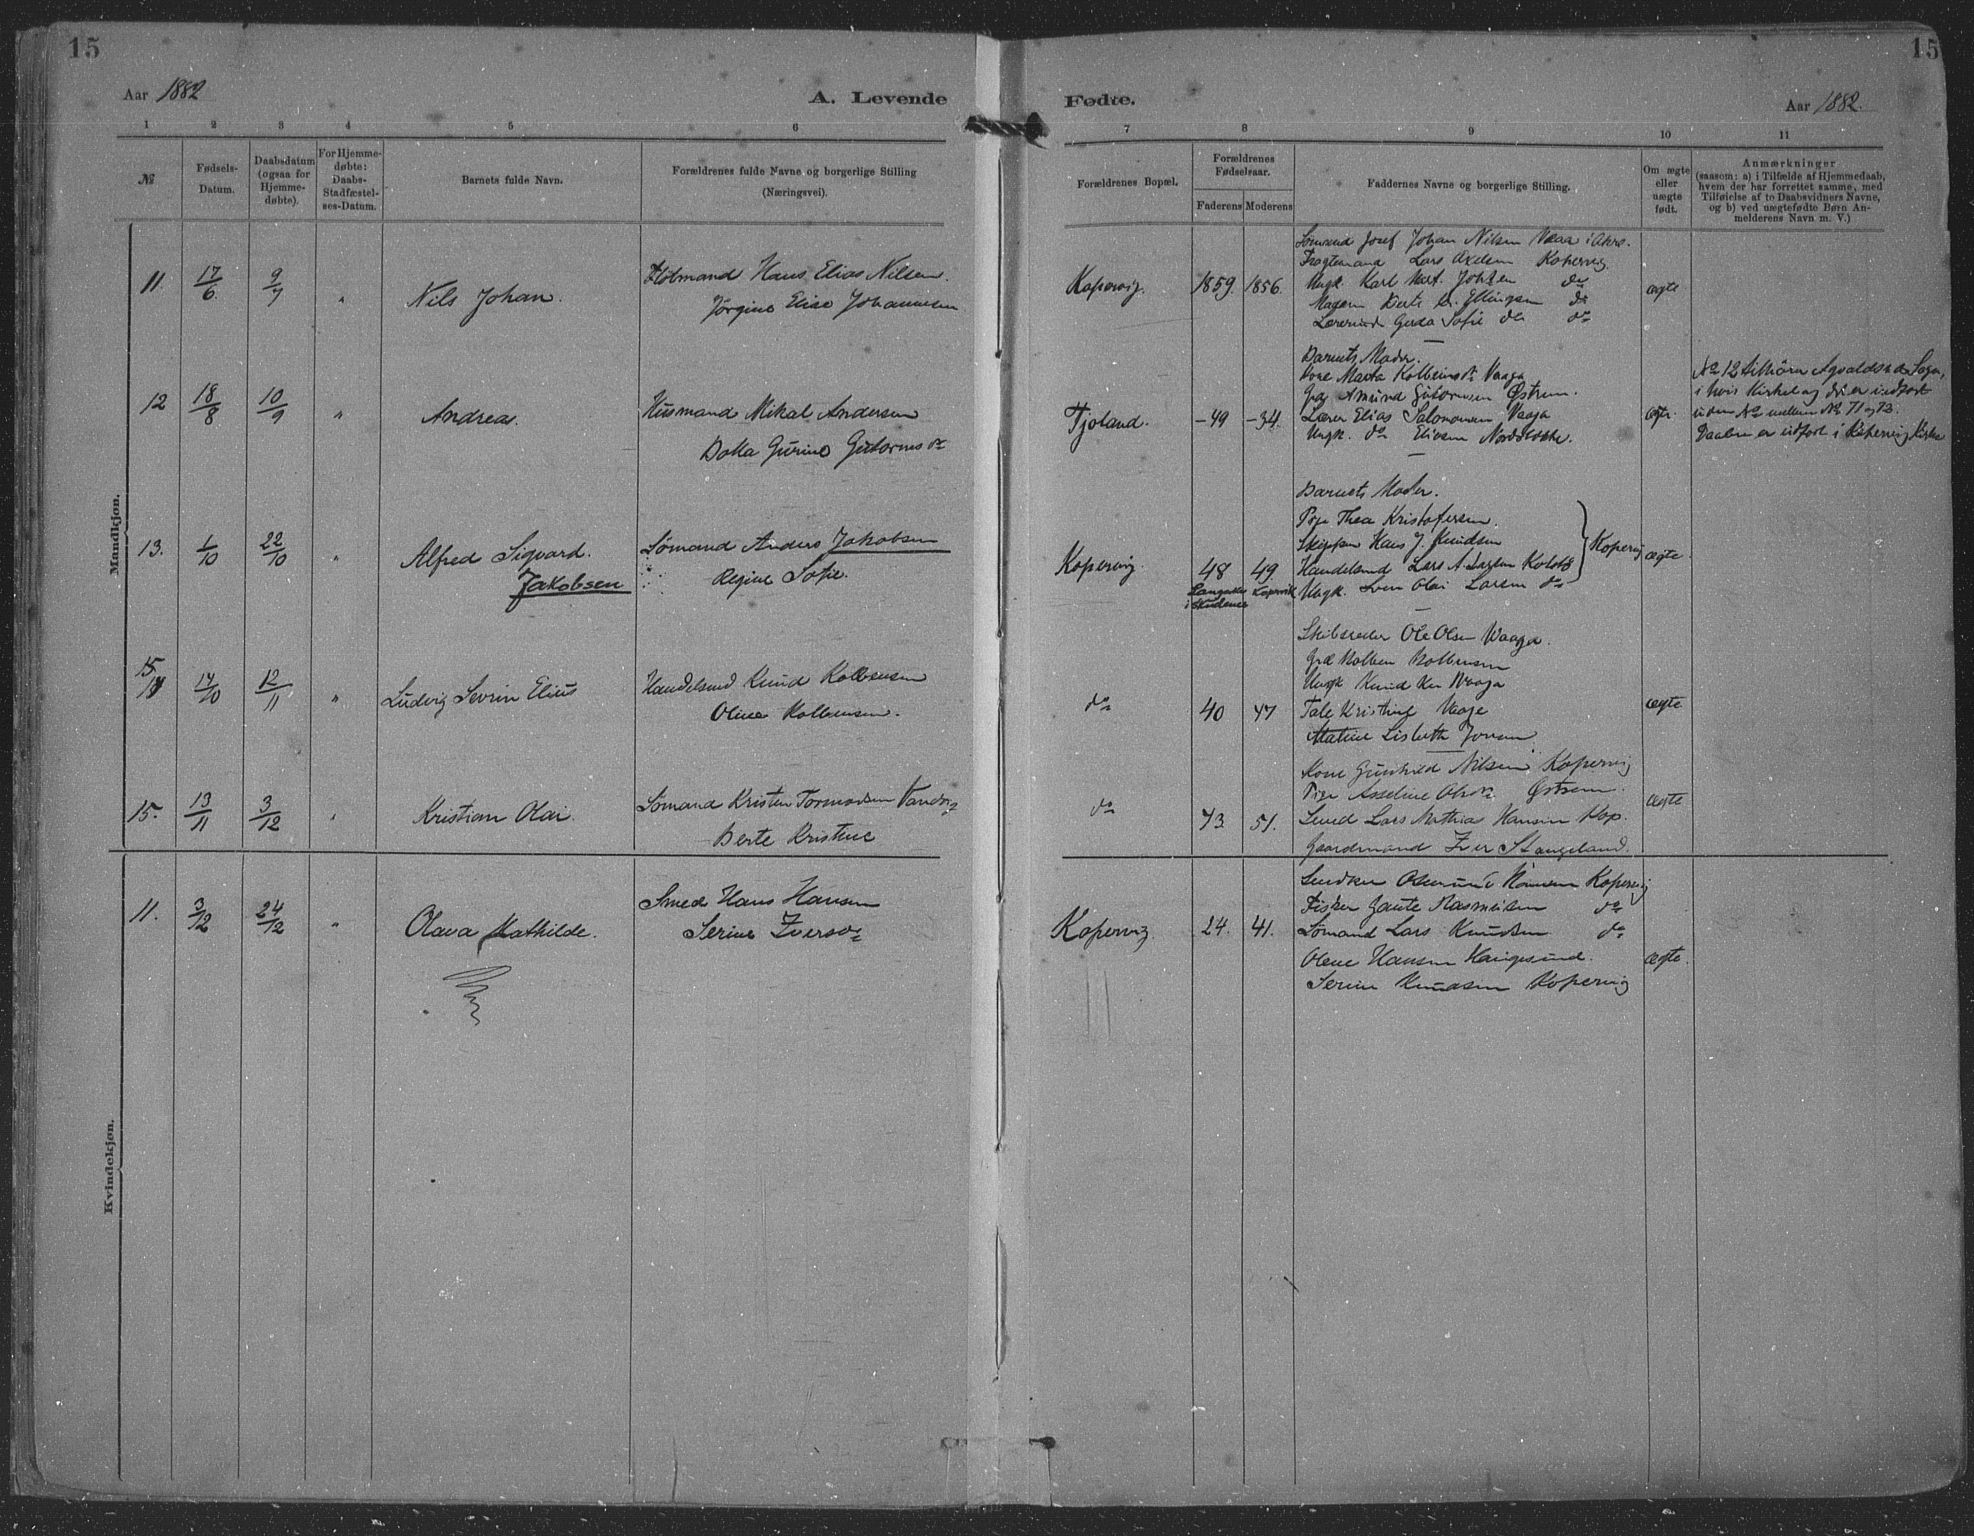 15
15
Aar 1882
A. Levende
Fødte.
Aar 1882.
1 2 3 4 5 6
7 8 9 10 11
№
Fødsels-
Datum.
Daabsdatum
(ogsaa for
Hjemme-
døbte).
For Hjemme-
døbte:
Daabs-
Stadfæstel-
ses-Datum.
Barnets fulde Navn.
Forældrenes fulde Navne og borgerlige Stilling
(Næringsvei).
Forældrenes Bopæl.
Forældrenes
Fødselsaar.
Faderens
Moderens
Faddernes Navne og borgerlige Stilling.
Om ægte
eller
uægte
født.
Anmærkninger
(saasom: a) i Tilfælde af Hjemmedaab,
hvem der har forrettet samme, med
Tilføielse af to Daabsvidners Navne,
og b) ved uægtefødte Børn An-
melderens Navn m. V.)
Mandkjøn.
11. 17/6 9/7 " Nils Johan.
Hans Elias Nilsen.
Jørgine Elise Johannesen
Kopervig. 1859. 1856.
Sømand Josef Johan Nilsen
Fragtemand Lars Kopervig
Ungk. Karl Mart. do
Ellingsen do
Gerda Sofie do do
ægte
12 18/8 10/9 " Andreas.
Husmand Mikal Andersen
Gurine
Tjoland. -49 -34.
Barnets Moder.
Kone Marta Vaaga
Amund Østrem.
Lærer Elias Salomonsen Vaaga
Ungk. do Eliasen
ægte.
№ 12 tilhører Sogn,
i hvis Kirkebog er indført
uden № mellem № 71 og 72.
Daaben er udført i Kopervig Kirke
13. 1/10 22/10 " Alfred Sigvard.
Jakobsen
Sømand Anders Jakobsen
Regine Sofie.
Kopervig. 48 49.
i Skudenes Kopervik
Barnets Moder.
Pige Thea Kristofersen.
Skipper Hans J. Knudsen
Handelsmd Lars A. Larsen
Ungk. Sven Olai Larsen do
Kopervig
ægte.
15
14 14/10 12/11 " Ludvig Sevrin Elius
Handelsmd Knud Kolbensen
Oline Kolbensen.
do 40 47
Skibsreder Ole Olsen Vaaga.
Kolben Kolbensen
Ungk Knud Vaaga
Tale Kristine Vaage
Matine Lisbeth
ægte
15. 13/11 3/12 Kristian Olai.
Sømand Kristen Tormodsen
Berte Kristine
do 43. 51.
Kone Gunhild Nilsen Kopervig
Pige Asseline Østrem.
Smed Lars Mathias Hansen Kop.
Gaardmand Iver Stangeland.
ægte
Kvindekjøn.
11. 3/12 24/12 " Olava Mathilde.
Smed Hans Hansen
Serine Iversd.
Kopervig. 24. 41.
Hansen Kopervig
Fisker Gaute Rasmussen do
Sømand Lars Knudsen do
Olene Hansen Haugesund.
Serine Knudsen Kopervig
ægte.